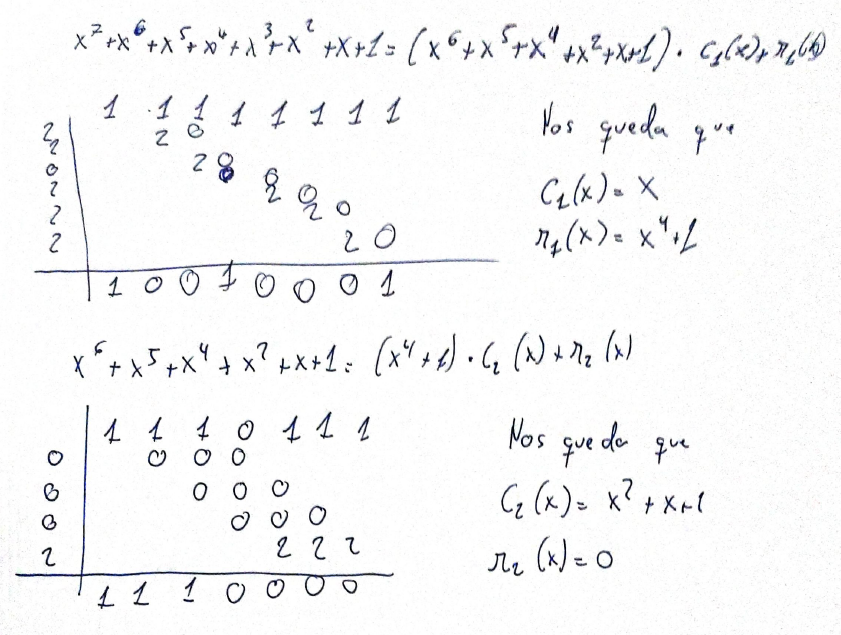 x⁷+x⁶+x⁵+x⁴+x³+x²+x+1=(x⁶+x⁵+x⁴+x²+x+1)·C₁(x)+r₁(x)
1 1 1 1 1 1 1 1
2 2 0
2 2 0
0 0 0
2 2 0
2 2 0
2 2 0
1 0 0 1 0 0 0 1
Nos queda que
C₁(x)=x
r₁(x)=x⁴+1
x⁶+x⁵+x⁴+x²+x+1=(x⁴+1)·C₂(x)+r₂(x)
1 1 1 0 1 1 1
0 0 0 0
0 0 0 0
0 0 0 0
2 2 2 2
1 1 1 0 0 0 0
Nos queda que
C₂(x)=x²+x+1
r₂(x)=0